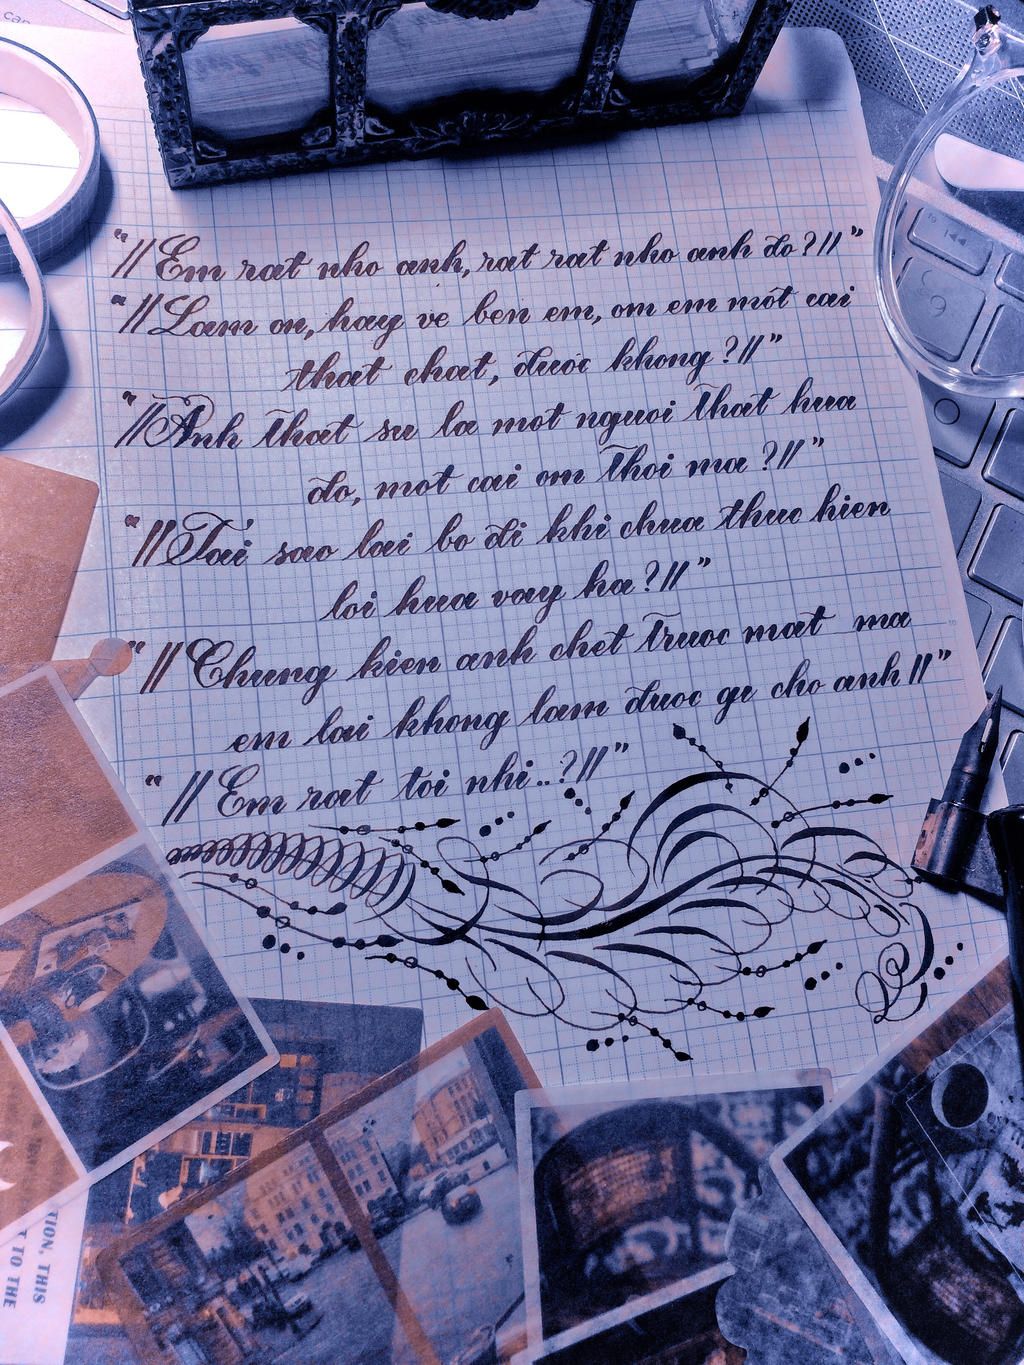 "//Em rat nho anh, rat rat nho anh do?//"
"//Lam on, hay ve ben em, om em mot cai
that chat, duoc khong?//"
"//Anh that su la mot nguoi that hua
do, mot cai om thoi ma?//"
"//Tai sao lai bo di khi chua thuc hien
loi hua vay ha?//"
"//Chung kien anh chet truoc mat ma
em lai khong lam duoc gi cho anh//"
"//Em rat toi nhi..?//"
TION, THIS
T TO THE